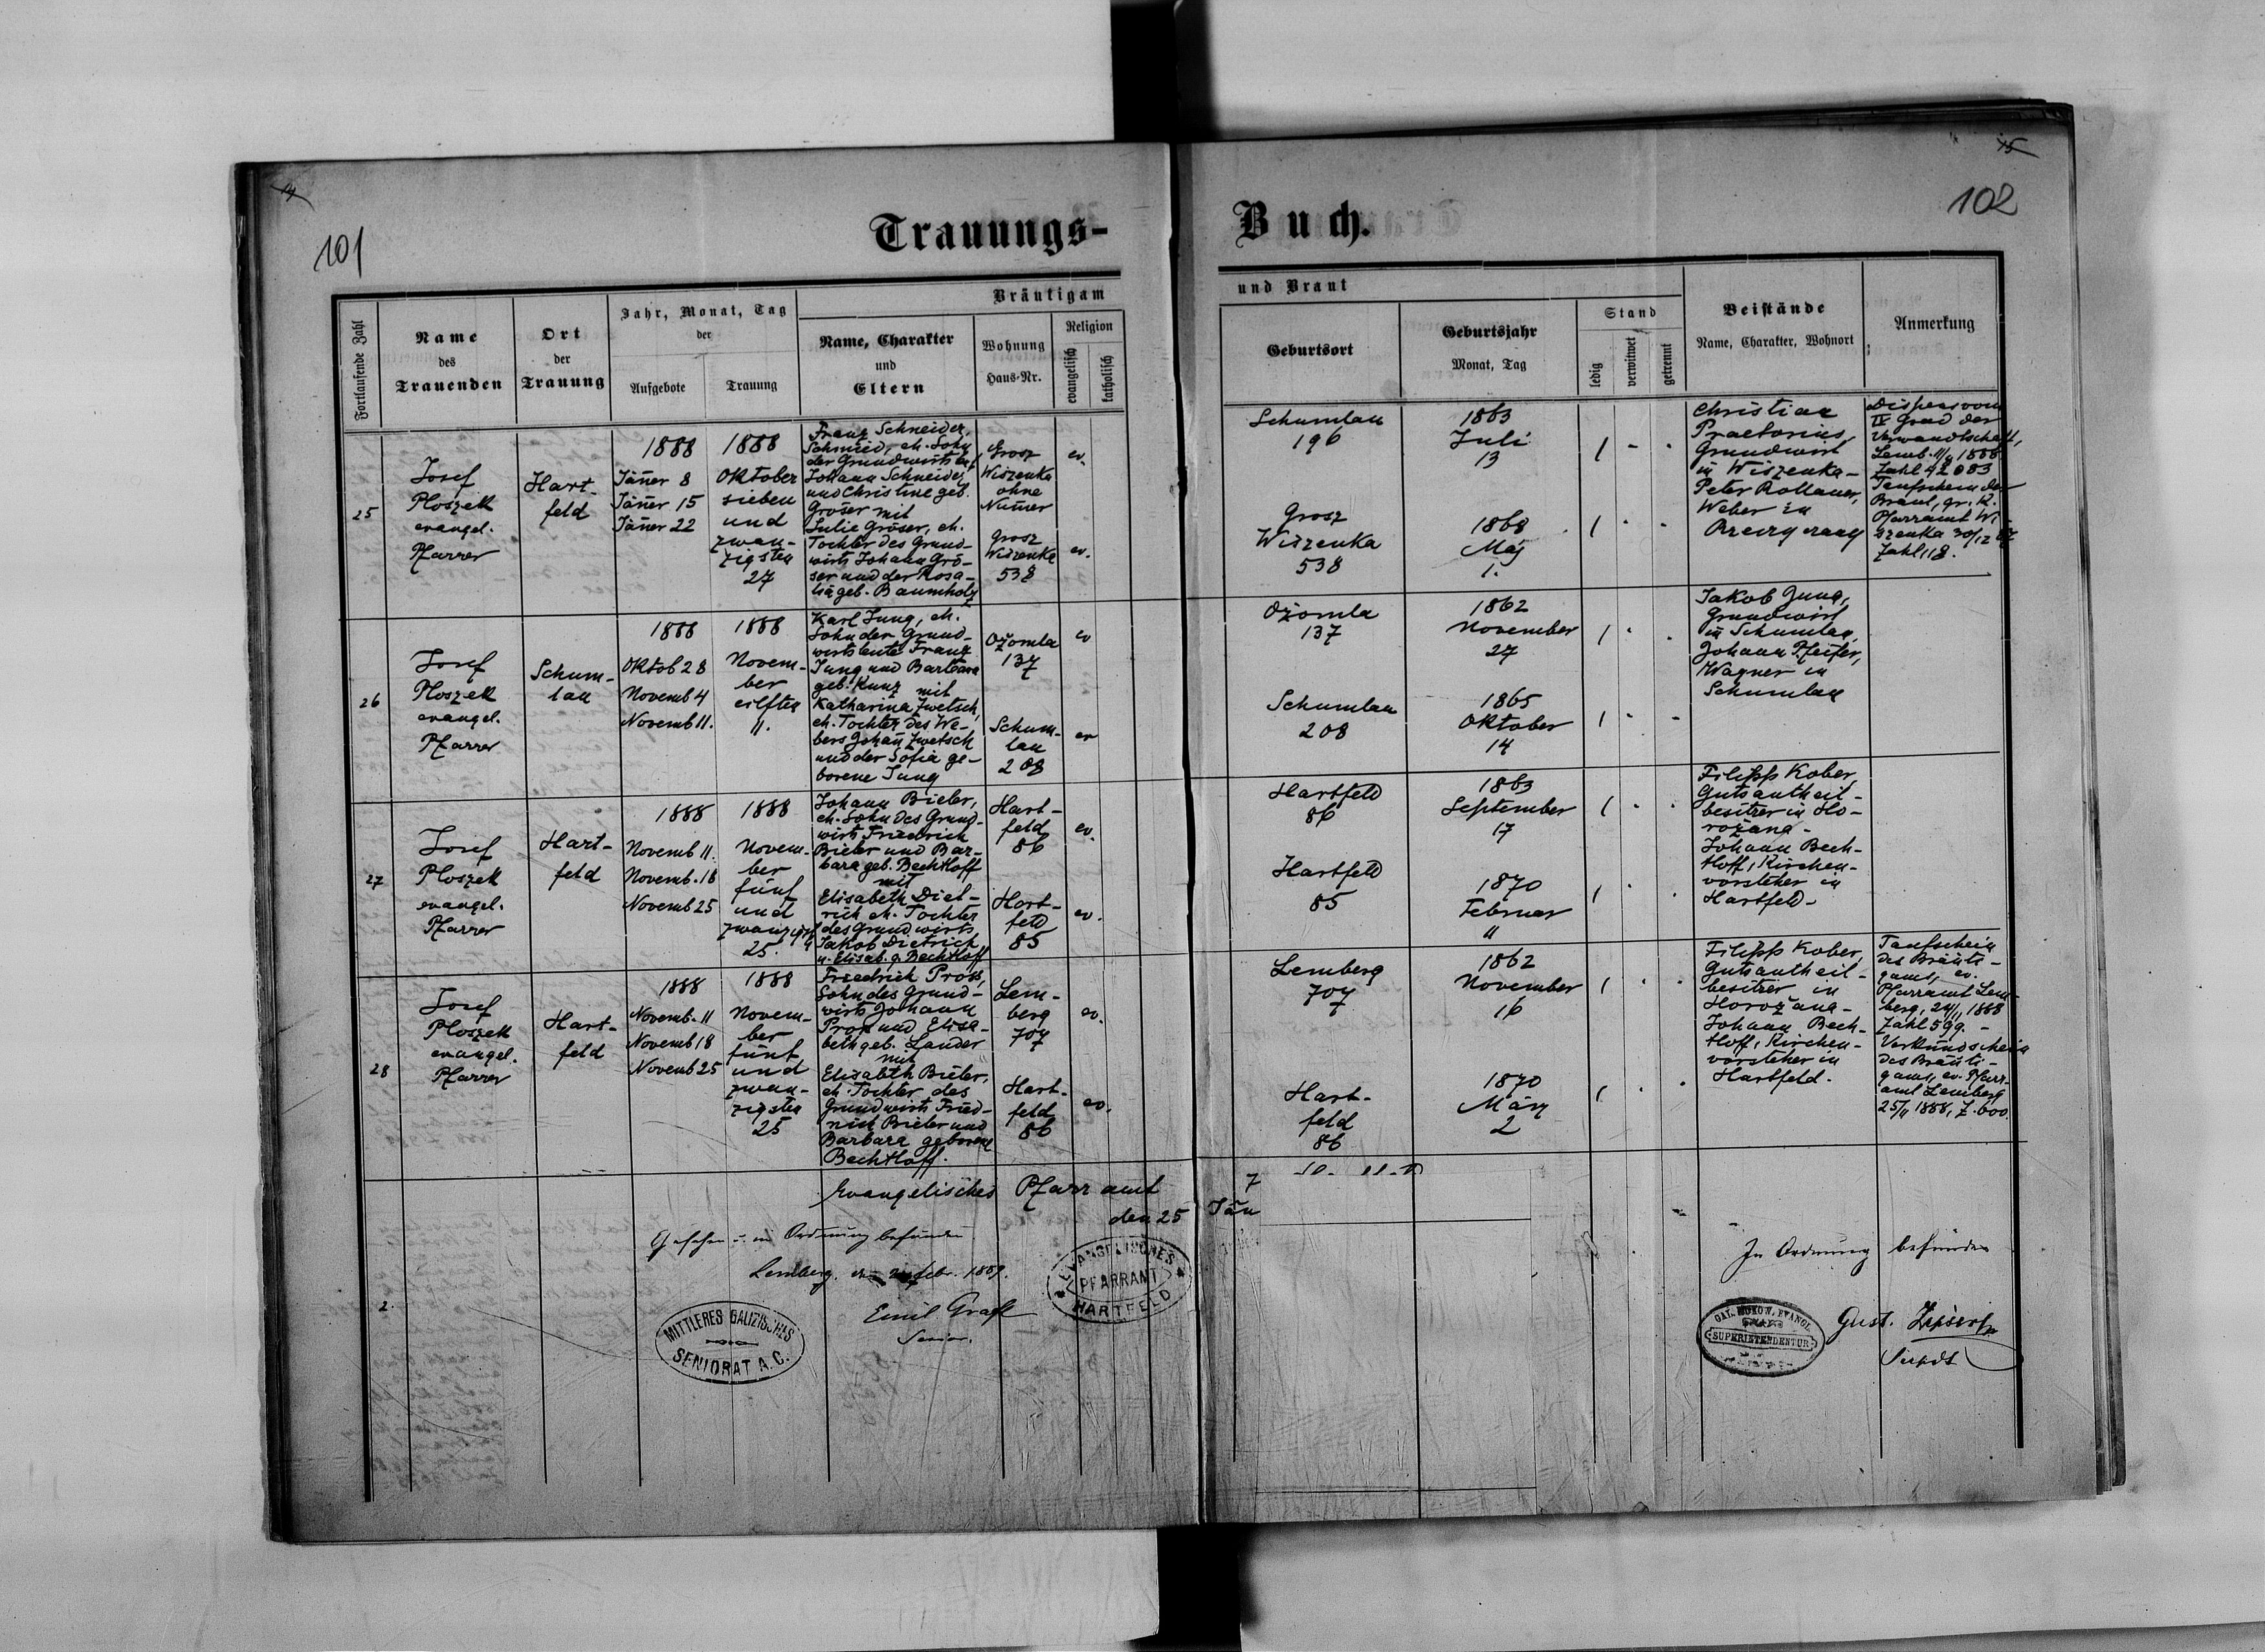 14
15
101
102
Trauungs-
Buch.
Fortlaufende Zahl
Name
des
Trauenden
Ort
der
Trauung
Jahr, Monat, Tag
der
Aufgebote
Trauung
Bräutigam
Name, Charakter
und
Eltern
Wohnung
Haus-Nr.
Religion
evangelisch
katholisch
und Braut
Geburtsort
Geburtsjahr
Monat, Tag
Stand
ledig
verwitwet
getrennt
Beistände
Name, Charakter, Wohnort
Anmerkung
25
Josef
Ploszek
evangel.
Pfarrer
Hart-
feld
1888
Jäner 8
Jäner 15
Jäner 22
1888
Oktober
sieben
und
zwan-
zigsten
27
Franz Schneider,
Schmied, eh. Sohn
der Grundwirtsleut
Johann Schneider
und Christine geb.
Gröser mit
Julie Gröser, eh.
Tochter des Grund-
wirts Johann Grö-
ser und der Rosa-
lia geb. Baumholz
Grosz
Wiszenka
ohne
Numer
Grosz
Wiszenka
538
ev.
ev.
Schumlau
196
Grosz
Wiszenka
538
1863
Juli
13
1868
Maj
1.
Christian
Praetorius,
Grundwirt
in Wiszenka -
Peter Rollauer,
Weber in
Dispens vom
IV Grad der
Verwandtschaft,
Lemb. 11/9 1888
Zahl 42083
Taufschein der
Braut, gr. k.
Pfarramt Wi-
szenka 30/12 87
Zahl 118.
26
Josef
Ploszek
evangel.
Pfarrer
Schum-
lau
1888
Oktob 28
Novemb 4
Novemb 11.
1888
Novem-
ber
eilften
11.
Karl Jung, eh.
Sohn der Grund-
wirtsleute Franz
Jung und Barbara
geb. Kunz mit
Katharina Zwetsch,
eh. Tochter des We-
bers Johan Zwetsch
und der Sofia ge-
borene Jung
Ożomla
137
Schum-
lau
208
ev
ev
Ożomla
137
Schumlau
208
1862
November
27
1865
Oktober
14
Jakob Jung,
Grundwirt
in Schumlau,
Johann Pfeifer,
Wagner in
Schumlau
27
Josef
Ploszek
evangel.
Pfarrer
Hart-
feld
1888
Novemb 11.
Novemb. 18
Novemb 25
1888
Novem-
ber
fünf
und
zwanzigst
25.
Johann Bieler,
eh. Sohn des Grund-
wirts Friedrich
Bieler und Bar-
bara geb. Bechtloff
mit
Elisabeth Diet-
rich eh. Tochter
des Grundwirts
Jakob Dietrich
u. Elisab. g. Bechtloff
Hart-
feld
86
Hart-
feld
85
ev.
ev.
Hartfeld
86
Hartfeld
85
1863
September
17
1870
Februar
11
Filipp Kober,
Gutsantheil-
besitzer in Ho-
rożana -
Johann Bech-
tloff, Kirchen-
vorsteher in
Hartfeld -
28
Josef
Ploszek
evangel.
Pfarrer
Hart-
feld
1888
Novemb. 11
Novemb 18
Novemb 25
1888
Novem-
ber
fünf
und
zwan-
zigsten
25
Friedrich Pross,
Sohn des Grund-
wirts Johann
Pross und Elisa-
beth geb. Lander
mit
Elisabeth Bieler,
eh. Tochter des
Grundwirts Fried-
rich Bieler und
Barbara geborene
Bechtloff.
Lem-
berg
707
Hart-
feld
86
ev.
ev.
Lemberg
707
Hart-
feld
86
1862
November
16
1870
März
2
Filipp Kober,
Gutsantheil-
besitzer in
Horożana -
Johann Bech-
tloff, Kirchen-
vorsteher in
Hartfeld.
Taufschein
des Bräuti-
gams, ev.
Pfarramt Lem-
berg, 24/11 1888
Zahl 599. -
Verkündschein
des Bräuti-
gams, ev. Pfarr-
amt Lemberg
25/11 1888, Z. 600.
Evangelisches Pfarramt
den 25 Jän
Gesehen u. in Ordnung befunden
Lemberg, Febr. 1889.
Emil Grafl
Senior.
MITTLERES GALIZISCHES
SENIORAT A.C.
EVANGELISCHES
PFARRAMT
HARTFELD
2.
In Ordnung befunden
GAL. BUKOW. EVANGL.
SUPERINTENDENTUR
Gust.
Supdt